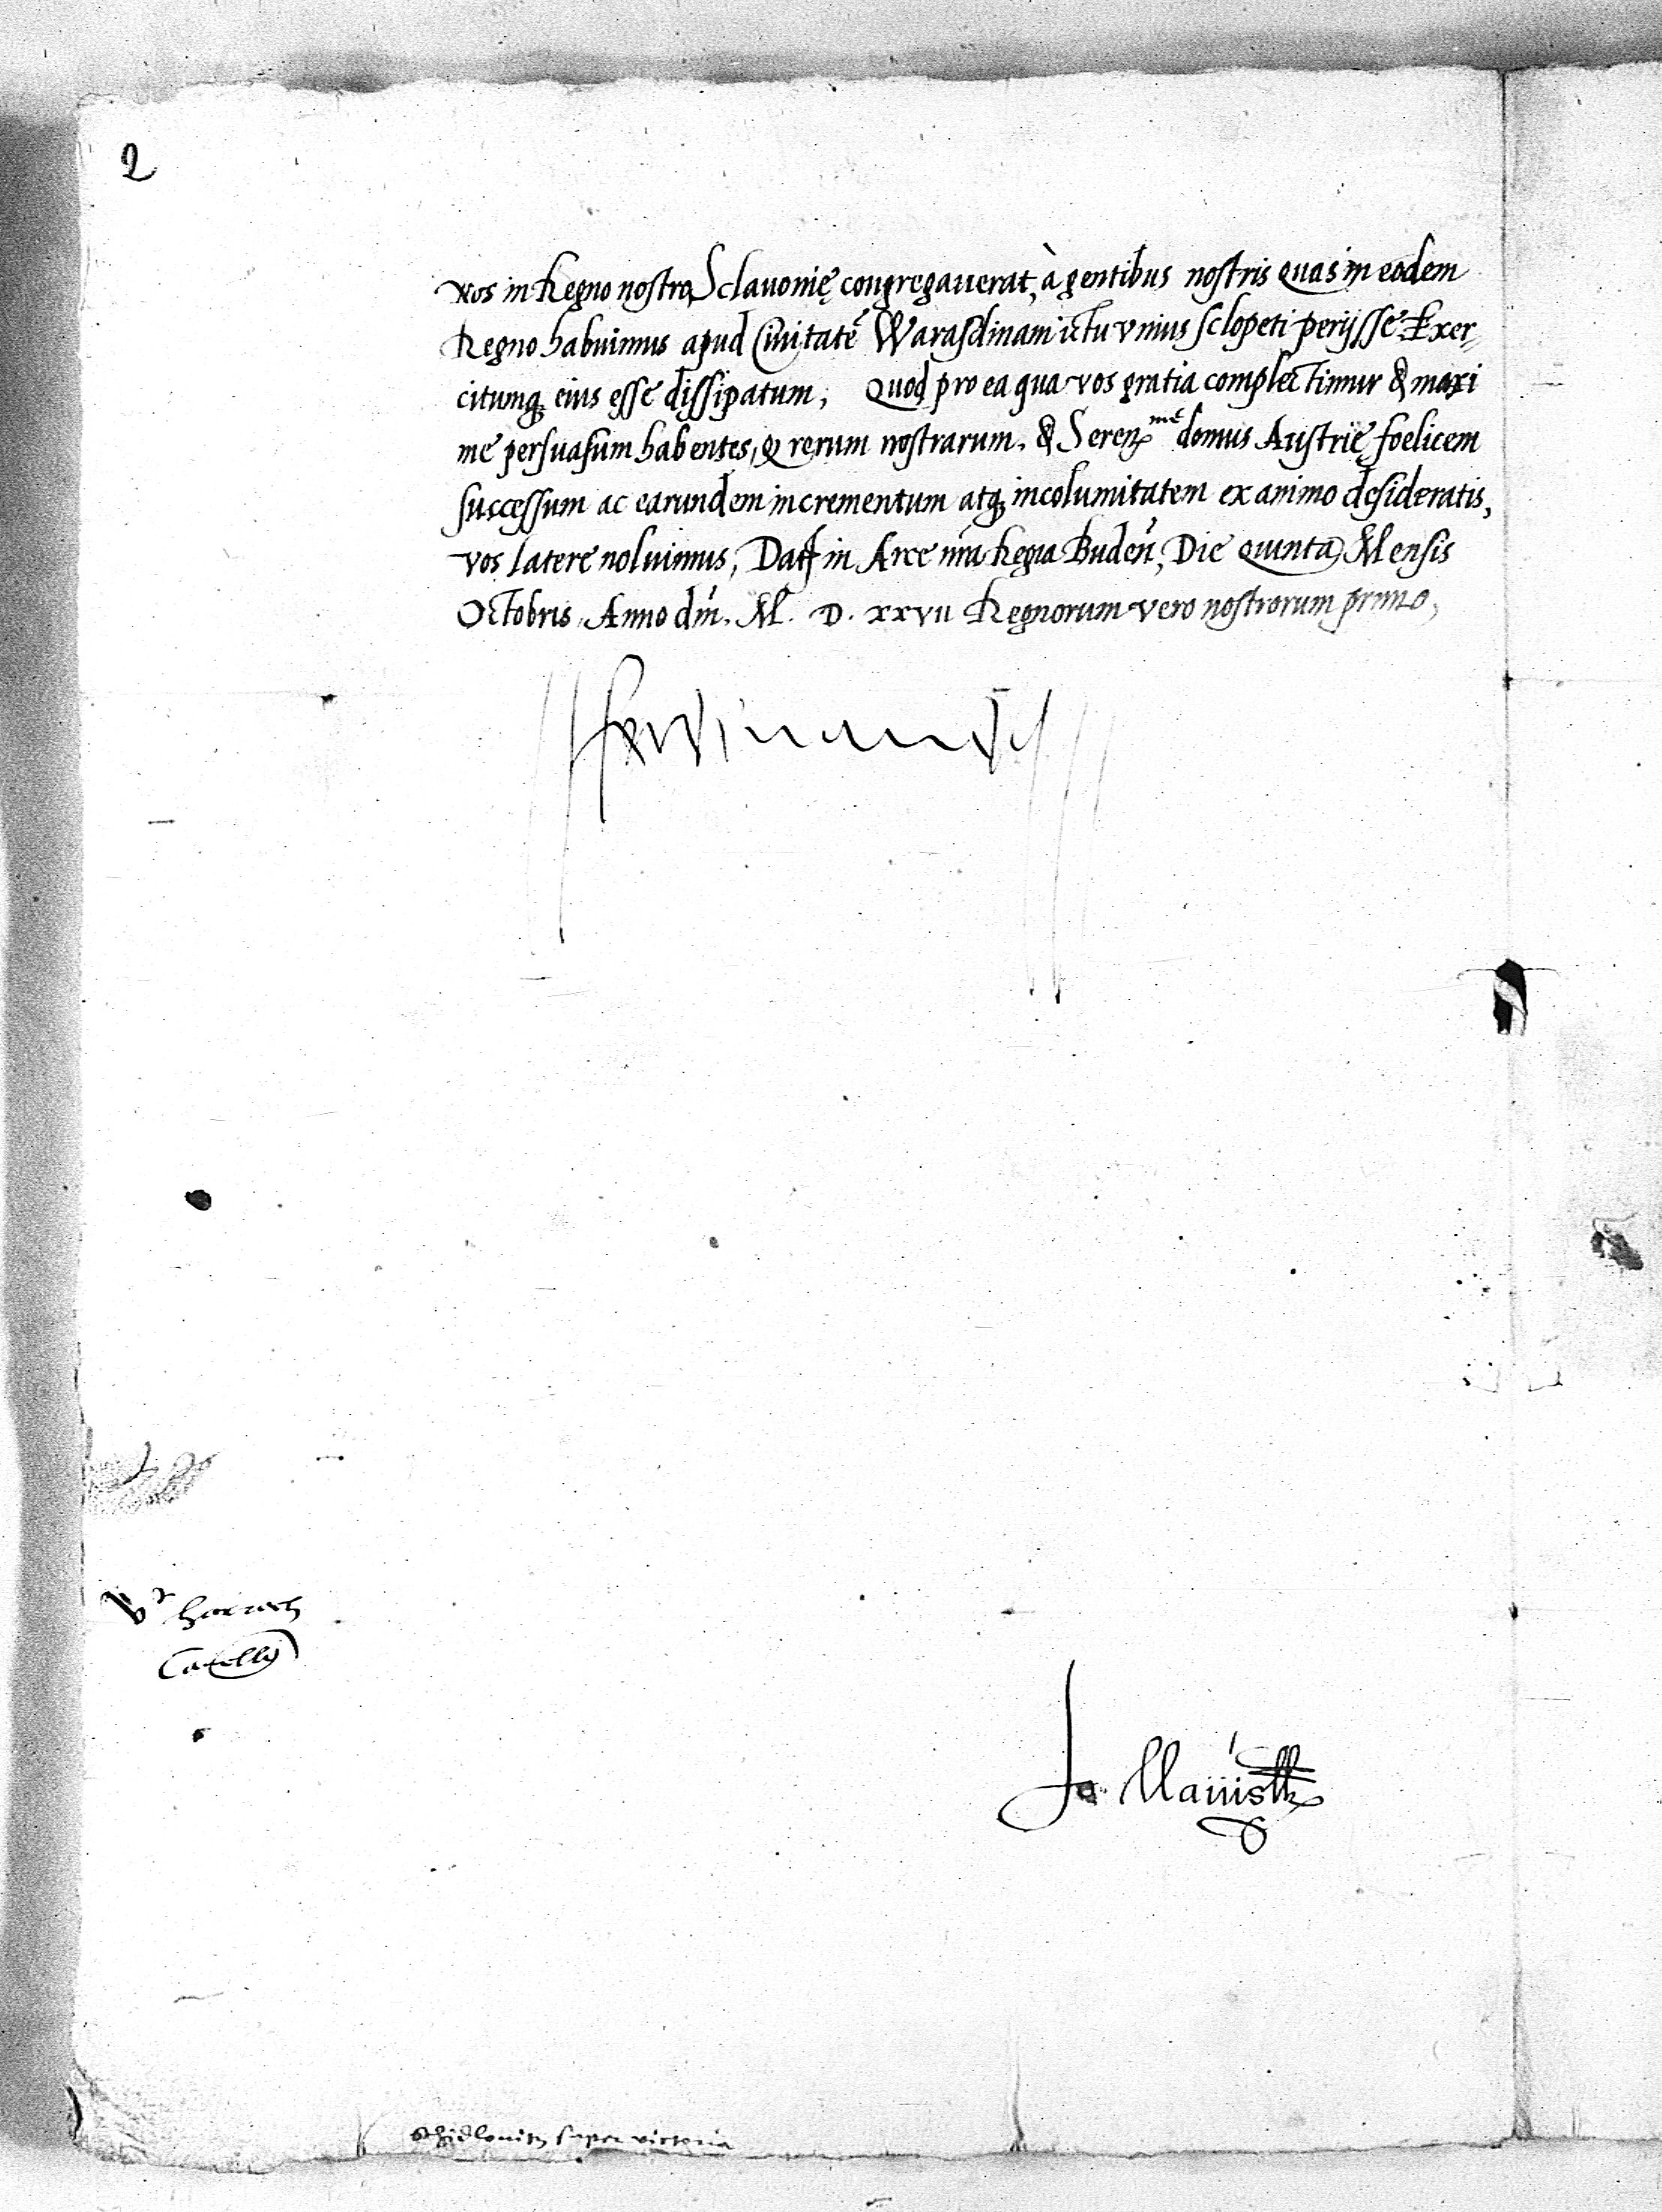 2
nos in Regno nostro Sclavonię congregaverat, à gentibus nostris quas in eodem
Regno habuimus apud Civitatē Warasdinam ictu unius sclopeti perijsse Exer-
citumq̃ eius esse dissipatum, Quod pro ea qua vos gratia complectimur & maxi
me persuasum habentes, q̃ rerum nostrarum. & Serenᵐᵉ domus Austrię foelicem
successum ac earundem incrementum atq̃ incolumitatem ex animo desideratis,
vos latere noluimus, Dat̃ in Arce nr̃a Regia Budeñ, Die Quinta Mensis
Octobris, Anno dñi. M. D. xxvii Regnorum vero nostrorum primo,
Ferdinand
Vʳ Harrach
Jo
schidlouitz super victoria